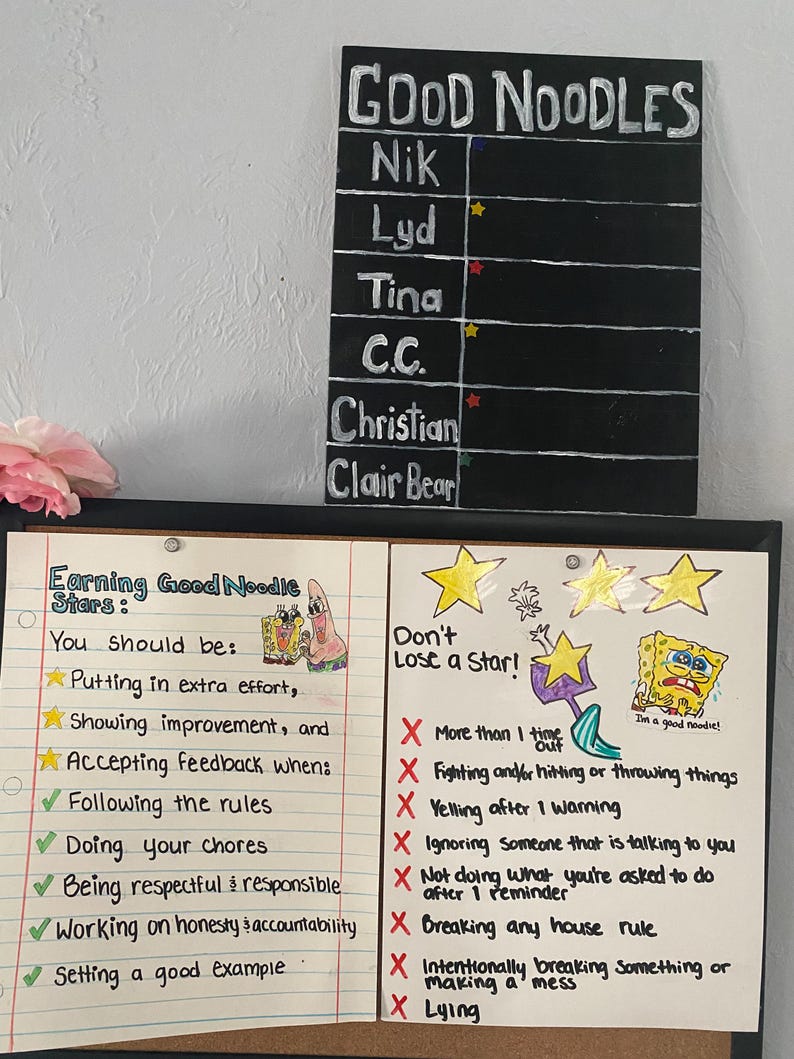 GOOD NOODLES
Nik
Lyd
Tina
C.C.
Christian
Clair Bear
Earning Good Noodle
Stars:
You should be:
Putting in extra effort,
Showing improvement, and
Accepting feedback when:
Following the rules
Doing your chores
Being respectful & responsible
Working on honesty & accountability
Setting a good example
Don't
Lose a Star!
I'm a good noodle!
More than 1 time
out
Fighting and/or hitting or throwing things
Yelling after 1 warning
Ignoring someone that is talking to you
Not doing what you're asked to do
after 1 reminder
Breaking any house rule
Intentionally breaking something or
making a mess
Lying